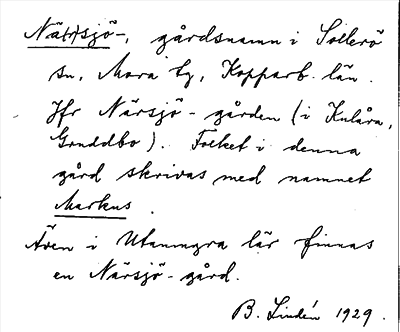 Nä(r)sjö-, gårdsnamn i Sollerö
sn, Mora tg, Kopparb. län.
Jfr Närsjö-gården (i Kulåra,
Gruddbo). Folket i denna
gård skrivas med namnet
Markus.
Även i Utanmyra lär finnas
en Närsjö-gård.
B. Lindén 1929.